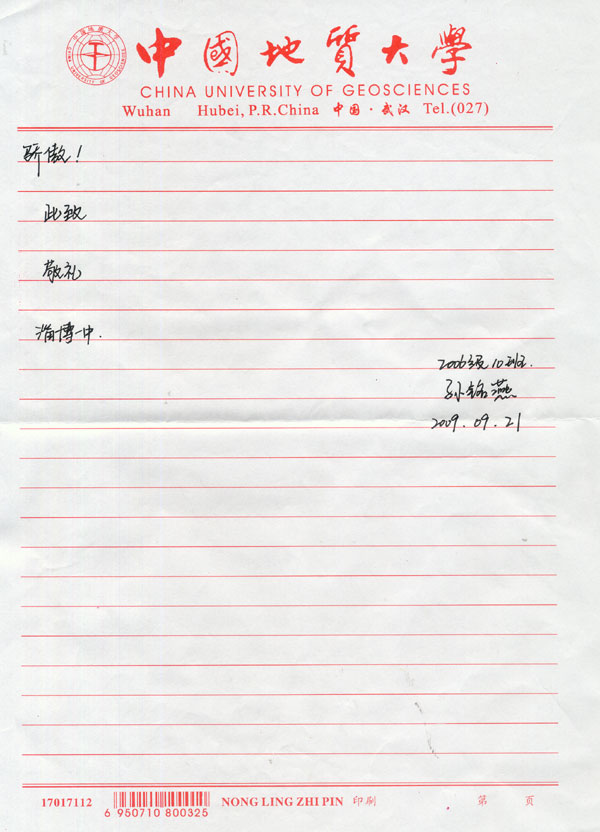 中國地質大學
CHINA UNIVERSITY OF GEOSCIENCES
Wuhan Hubei, P.R.China 中国·武汉 Tel.(027)
骄傲!
此致
敬礼
淄博一中.
2006级10班.
孙铭燕
2009.09.21
17017112
6 950710 800325
NONG LING ZHI PIN 印刷
第 页